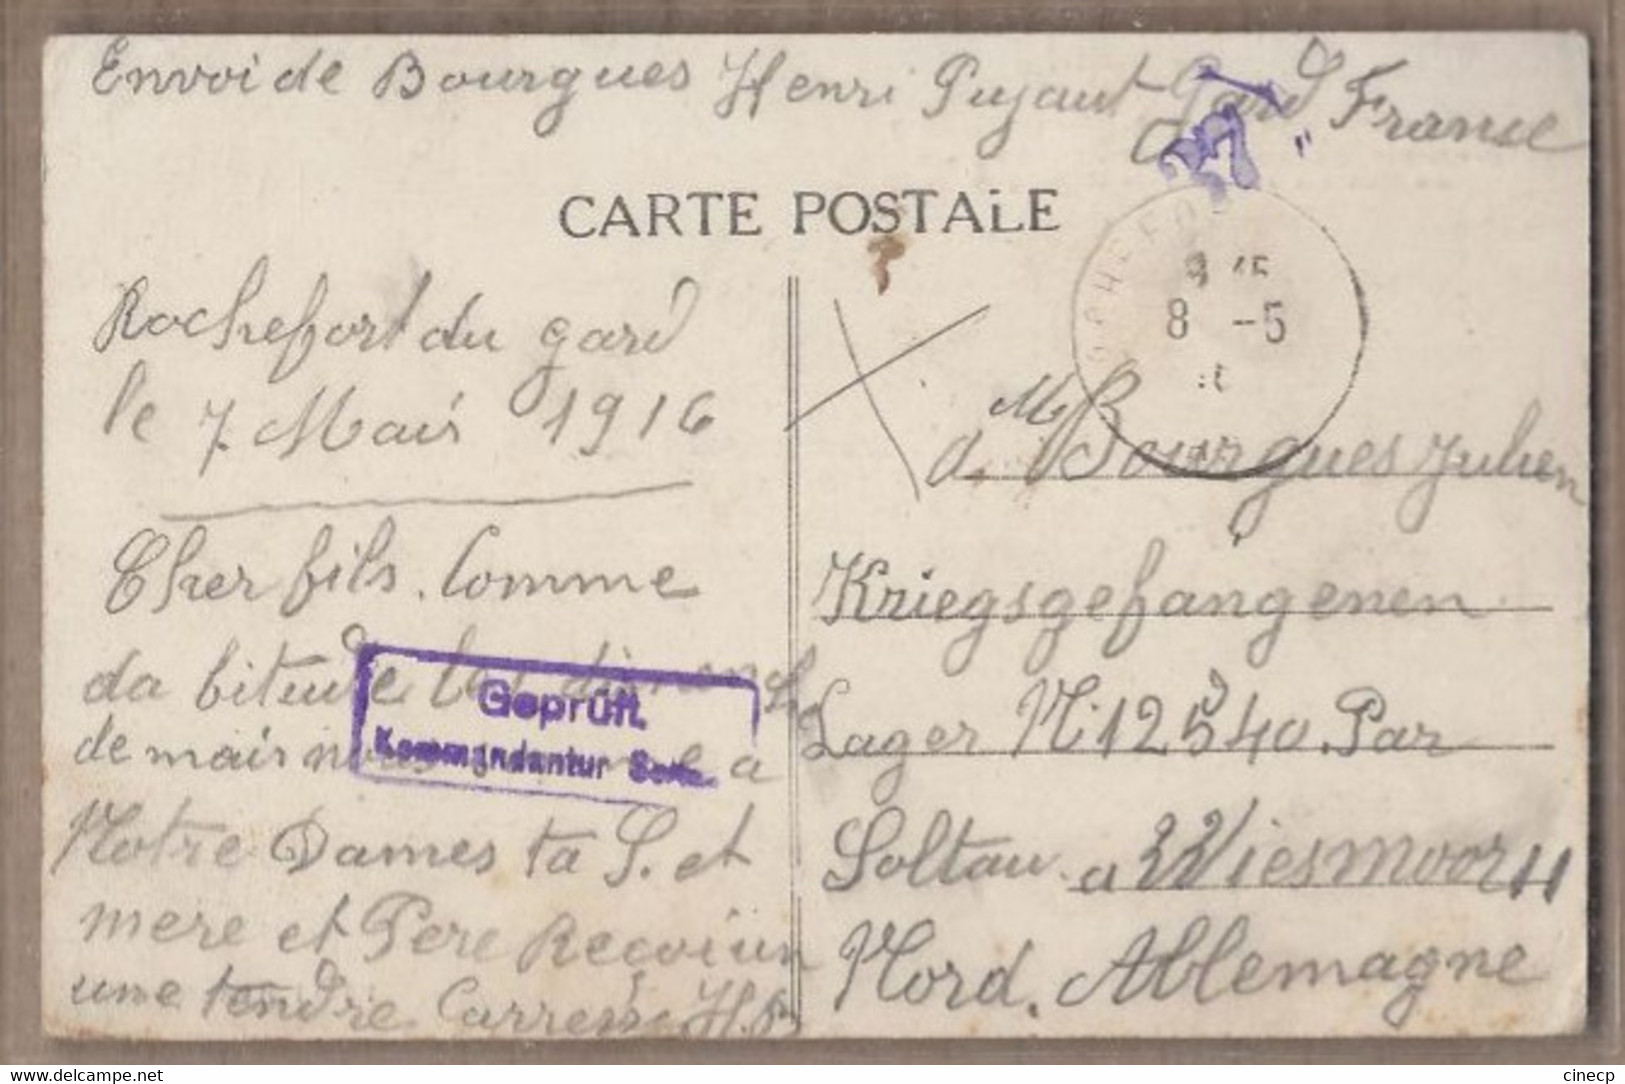 Envoi de Bourgues Henri Pujaut Gard France
CARTE POSTALE
Rochefort du gard
le 7 Mais 1916
Cher fils. Comme
da bitude les
de mais
a
Notre Dames ta S. et
mere et Pere Reçoi un
une tendre Carresse H.B
Geprüft.
Kommandantur
8 -5
a Mr Bourgues Julien
Kriegsgefangenen
Lager N. 12540. Par
Soltau. a Wiesmoor 11
Nord. Allemagne
delcampe.net
cinecp